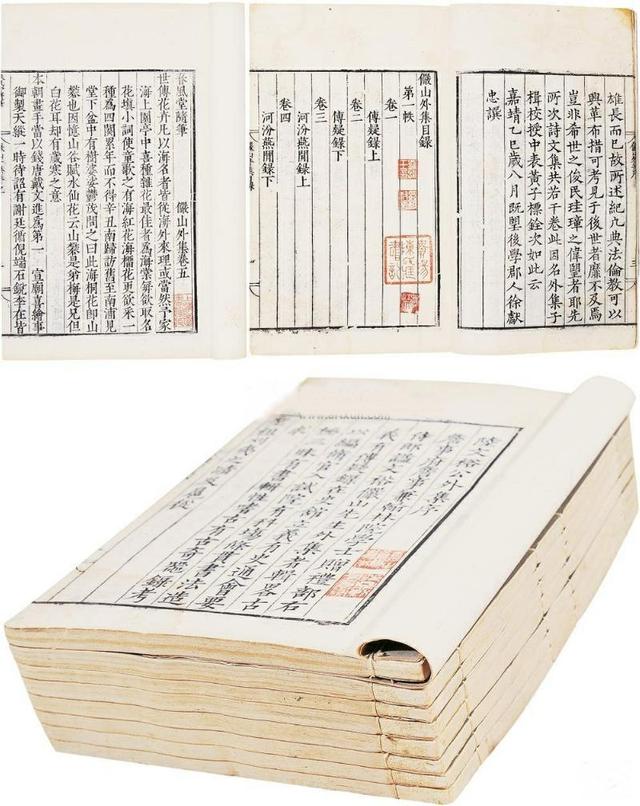 雄長而已故所述紀凡典法倫敎可以
興革布措可考見于後世者靡不及焉
豈非希世之俊民珪璋之偉望者耶先
所次詩文集共若干卷此因名外集子
楫校授中表黃子標銓次如此云
嘉靖乙巳歲八月既望後學郡人徐獻
忠譔
儼山外集目錄
第一帙
卷一
傳疑錄上
卷二
傳疑錄下
卷三
河汾燕閒錄上
卷四
河汾燕閒錄下
春風堂隨筆 儼山外集卷五
世傳花卉凡以海名者皆從海外來理或當然予家
海上園亭中喜種雜花最佳者爲海棠每欲取名
花填小詞使童歌之有海紅花海榴花更欲采一
種爲四闋累年而不得辛丑南歸訪舊至南浦見
堂下盆中有樹婆娑鬱茂問之曰此海桐花卽山
礬也因憶山谷賦水仙花云山礬是弟梅是兄但
白花耳却有歲寒之意
本朝畫手當以錢唐戴文進爲第一 宣廟喜繪事
御製天縱一時待詔有謝廷循倪端石銳李在皆
陸文裕公外集序
詹事府詹事兼翰林院學士贈禮部右
侍郎諡文裕儼山先生外集者